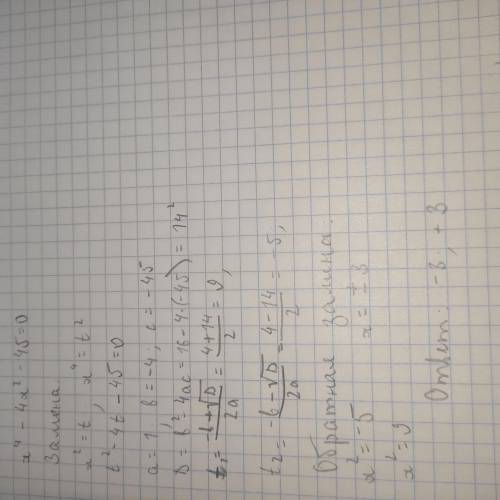 x⁴ - 4x² - 45 = 0
Замена
x² = t, x⁴ = t²
t² - 4t - 45 = 0
a = 1. b = -4; c = -45
D = b² - 4ac = 16 - 4·(-45) = 14²
t₁ = (-b + √D) / 2a = (4 + 14) / 2 = 9,
t₂ = (-b - √D) / 2a = (4 - 14) / 2 = -5,
Обратная замена:
x² = -5 x = ± 3
x² = 9
Ответ: -3; +3